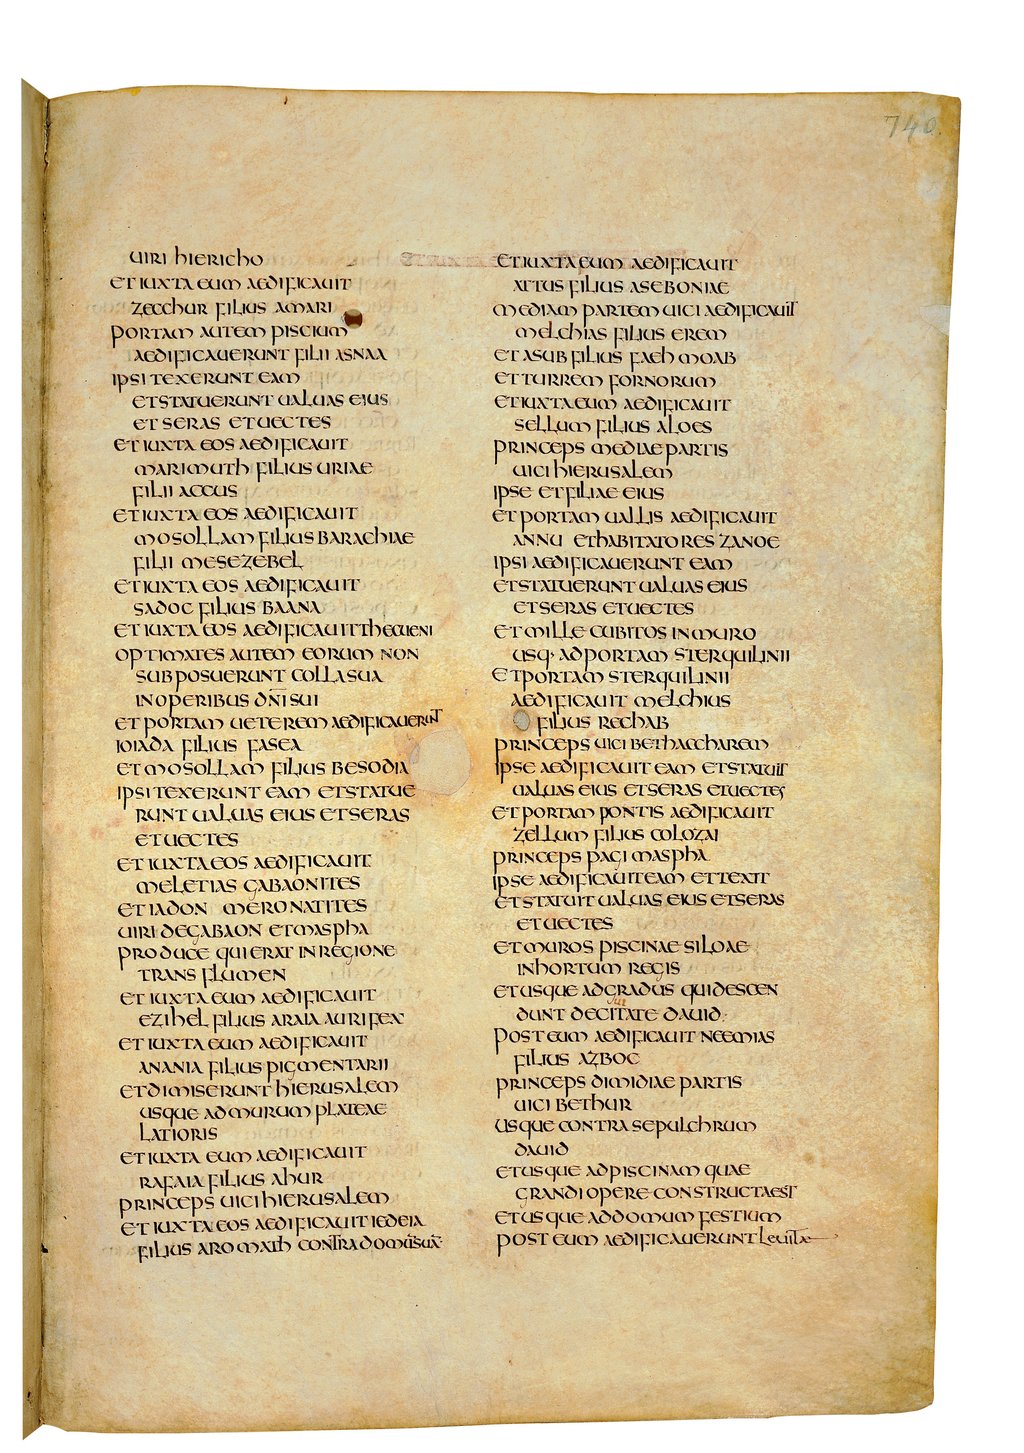 740
UIRI hIERICHO
ET IUXTA EUM AEDIFICAUIT
ZECCHUR FILIUS AMARI
PORTAM AUTEM PISCIUM
AEDIFICAUERUNT FILII ASNAA
IPSI TEXERUNT EAM
ET STATUERUNT UALUAS EIUS
ET SERAS ET UECTES
ET IUXTA EOS AEDIFICAUIT
MARIMUTH FILIUS URIAE
FILII ACCUS
ET IUXTA EOS AEDIFICAUIT
MOSOLLAM FILIUS BARACHIAE
FILII MESEZEBEL
ET IUXTA EOS AEDIFICAUIT
SADOC FILIUS BAANA
ET IUXTA EOS AEDIFICAUIT THECUENI
OPTIMATES AUTEM EORUM NON
SUBPOSUERUNT COLLA SUA
IN OPERIBUS DN̄I SUI
ET PORTAM UETEREM AEDIFICAUERUNT
IOIADA FILIUS FASEA
ET MOSOLLAM FILIUS BESODIA
IPSI TEXERUNT EAM ET STATUE
RUNT UALUAS EIUS ET SERAS
ET UECTES
ET IUXTA EOS AEDIFICAUIT
MELETIAS GABAONITES
ET IADON MERONATITES
UIRI DE GABAON ET MASPHA
PRO DUCE QUI ERAT IN REGIONE
TRANS FLUMEN
ET IUXTA EUM AEDIFICAUIT
EZIHEL FILIUS ARAIA AURIFEX
ET IUXTA EUM AEDIFICAUIT
ANANIA FILIUS PIGMENTARII
ET DIMISERUNT HIERUSALEM
USQUE AD MURUM PLATEAE
LATIORIS
ET IUXTA EUM AEDIFICAUIT
RAFAIA FILIUS AHUR
PRINCEPS UICI HIERUSALEM
ET IUXTA EOS AEDIFICAUIT IEDEIA
FILIUS AROMATH CONTRA DOMŪ SUĀ
ET IUXTA EUM AEDIFICAUIT
ATTUS FILIUS ASEBONIAE
MEDIAM PARTEM UICI AEDIFICAUIT
MELCHIAS FILIUS EREM
ET ASUB FILIUS FAEH MOAB
ET TURREM FORNORUM
ET IUXTA EUM AEDIFICAUIT
SELLUM FILIUS ALOES
PRINCEPS MEDIAE PARTIS
UICI HIERUSALEM
IPSE ET FILIAE EIUS
ET PORTAM UALLIS AEDIFICAUIT
ANNU ET HABITATORES ZANOE
IPSI AEDIFICAUERUNT EAM
ET STATUERUNT UALUAS EIUS
ET SERAS ET UECTES
ET MILLE CUBITOS IN MURO
USQ· AD PORTAM STERQUILINII
ET PORTAM STERQUILINII
AEDIFICAUIT MELCHIUS
FILIUS RECHAB
PRINCEPS UICI BETHACCHAREM
IPSE AEDIFICAUIT EAM ET STATUIT
UALUAS EIUS ET SERAS ET UECTES
ET PORTAM PONTIS AEDIFICAUIT
ZELLUM FILIUS COLOZAI
PRINCEPS PAGI MASPHA
IPSE AEDIFICAUIT EAM ET TEXIT
ET STATUIT UALUAS EIUS ET SERAS
ET UECTES
ET MUROS PISCINAE SILOAE
IN HORTUM REGIS
ET USQUE AD GRADUS QUI DESCEN
DUNT DE CITATE DAUID
POST EUM AEDIFICAUIT NEEMIAS
FILIUS AZBOC
PRINCEPS DIMIDIAE PARTIS
UICI BETHUR
USQUE CONTRA SEPULCHRUM
DAUID
ET USQUE AD PISCINAM QUAE
GRANDI OPERE CONSTRUCTA EST
ET USQUE AD DOMUM FESTIUM
POST EUM AEDIFICAUERUNT LEUITAE